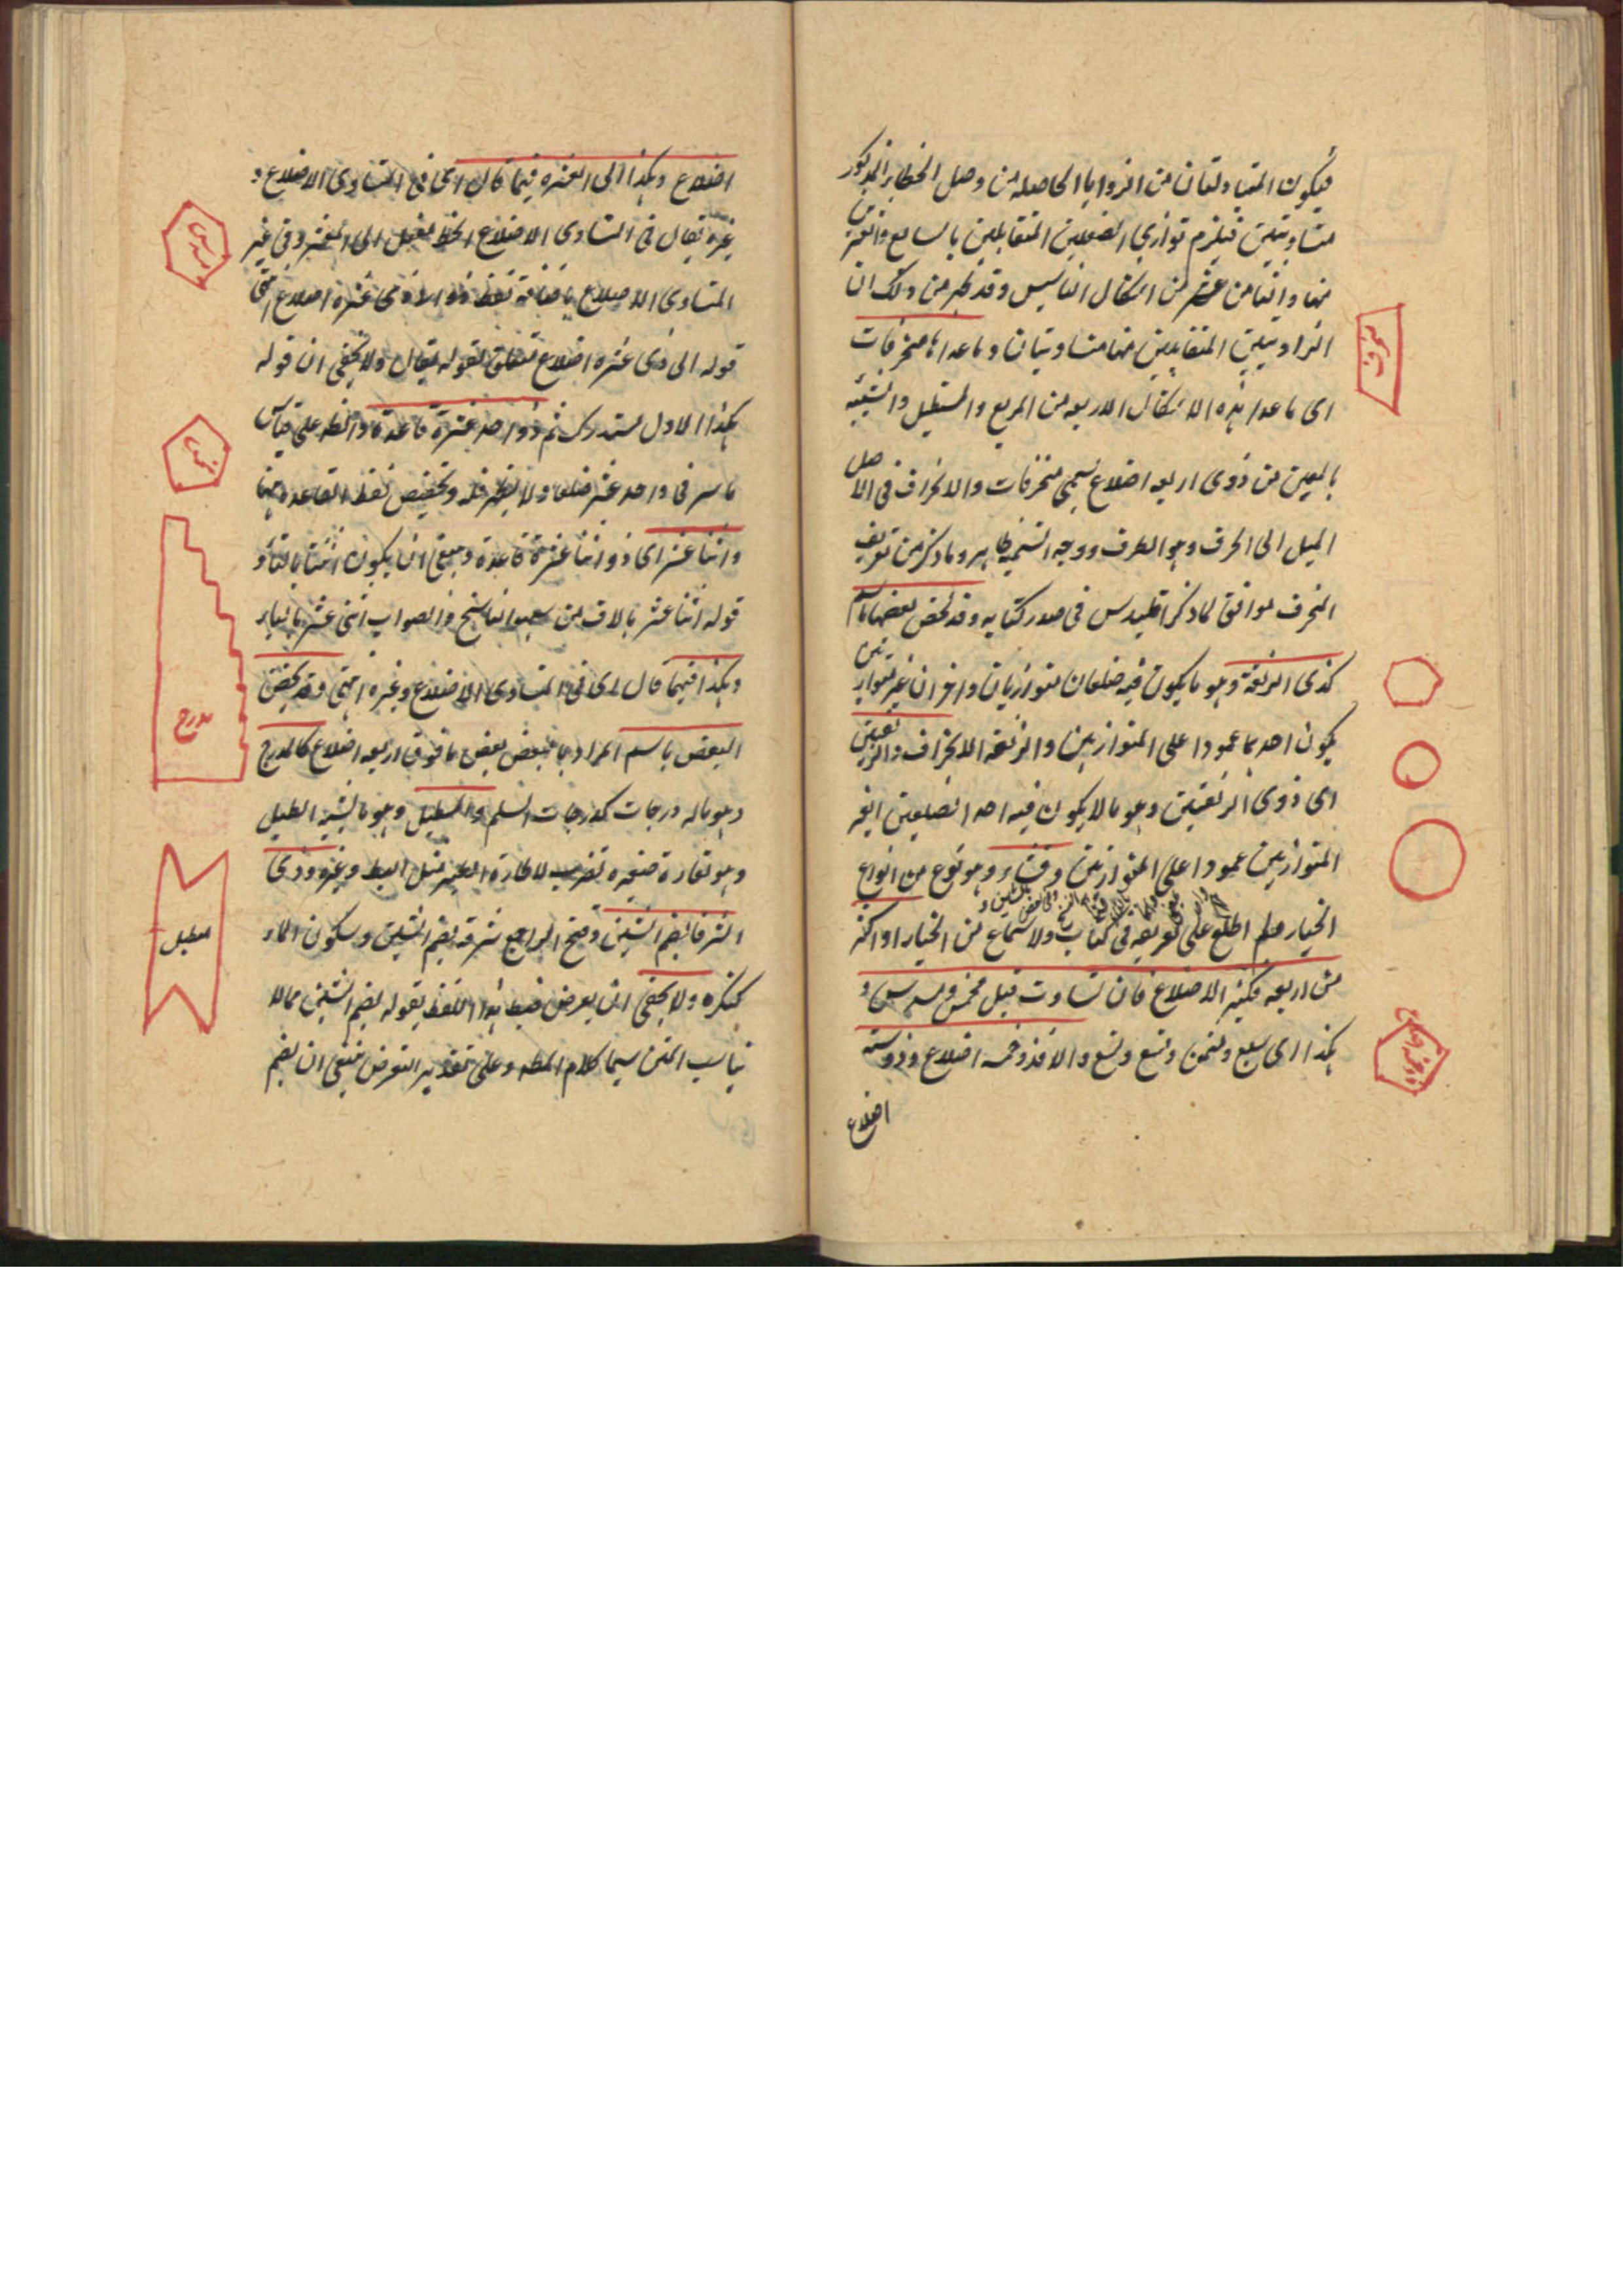 فيكون المتبادلتان من الزوايا الحاصلة من وصل الخط المذكور
متساويتين فيلزم توازي الضلعين المتقابلين بالسابع والعشرين
منها والثامن عشر من اشكال التاسيس وقد ظهر من ذلك ان
الزاويتين المتقابلتين منها متساويتان وما عداها منحرفات
اى ما عدا هذه الاشكال الاربعه من المربع والمستطيل والشبيه
بالمعين من ذوى اربعه اضلاع تسمى منحرفات والانحراف فى الاصل
الميل الى الحرف وهو الطرف ووجه التسميه ظاهر وما ذكر من تعريف
المنحرف موافق لما ذكر اقليدس فى صدر كتابه وقد يخص بعضها باسم
كذى الزنقة وهو ما يكون فيه ضلعان متوازيان واخران غير متوازيين
يكون احدهما عمودا على المتوازيين والزنقه الانحراف والزنقتين
اى ذوى الزنقتين وهو ما لا يكون فيه احد الضلعين الغير
المتوازيين عمودا على المتوازيين وقثاء وهو نوع من انواع
الخيار ولم اطلع على تعريفه فى كتاب ولا سماع من الخيار او اكثر
من اربعه فكثير الاضلاع فان تساوت قيل مخمس ومسدس و
هكذا اى مسبع ومثمن ومتسع والا فذو خمسه اضلاع وذو سته
اضلاع
اضلاع وهكذا الى العشره فيهما قال اى فى المتساوى الاضلاع و
غيره يقال فى المتساوى الاضلاع الى المعشر وفى غير
المتساوى الاضلاع باضافة لفظ ذو الى ذى عشره اضلاع انتهى
قوله الى ذى عشره اضلاع متعلق بقوله يقال ولا يخفى ان قوله
هكذا الاول مستدرك ثم ذو احد عشرة قاعدة على قياس
ما سر فى واحد عشر ضلعا ولا يظهر وتخصيص لفظ القاعده هنا
واثنا عشر اى ذو اثنا عشرة قاعدة وينبغى ان يكون
قوله اثنا عشر بالالف من سهو الناسخ والصواب اثنى عشر بالياء
وهكذا فيهما قال اى فى المتساوى الاضلاع وغيره انتهى وقد يخص
البعض باسم المراد بالبعض بعض ما فوق اربعه اضلاع كالمدرج
وهو ما له درجات كدرجات السلم والمطبل وهو ما يشبه الطبل
وهو نقارة صغيره تضرب لاطارة الطير مثل البط وغيره وذى
الشرف بضم الشين وفتح الراء جمع شرفه بضم الشين وسكون الراء
كنكره ولا يخفى ان تعرض ضبط هذا اللفظ بقوله بضم الشين مما لا
يناسب المتن سيما كلام المصه وعلى تقدير التعرض ينبغى ان يضم
مسدس
مخمس
مدرج
مطبل